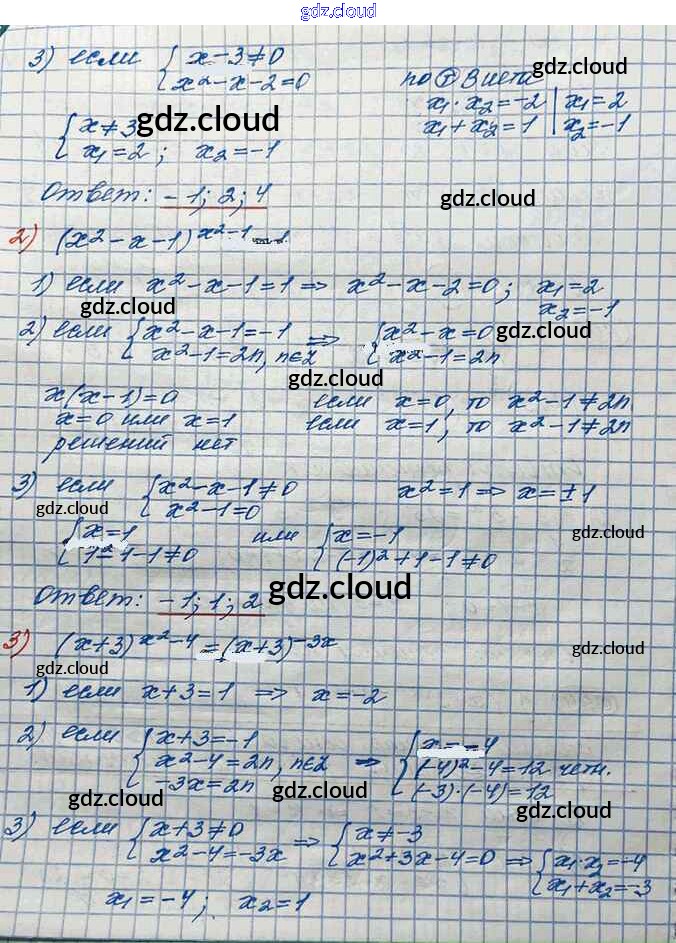 gdz.cloud
gdz.cloud
3) если { x-3≠0
x²-x-2=0
по т Виета
x₁·x₂=-2 | x₁=2
x₁+x₂=1 | x₂=-1
gdz.cloud
{ x≠3
x₁=2; x₂=-1
gdz.cloud
Ответ: -1; 2; 4
gdz.cloud
2) (x²-x-1)^(x²-1)=1
1) если x²-x-1=1 => x²-x-2=0; x₁=2
x₂=-1
gdz.cloud
2) если { x²-x-1=-1 => { x²-x=0
x²-1=2n, n∈Z x²-1=2n
gdz.cloud
gdz.cloud
x(x-1)=0 если x=0, то x²-1≠2n
x=0 или x=1 если x=1, то x²-1≠2n
решений нет
3) если { x²-x-1≠0 x²=1 => x=±1
x²-1=0
gdz.cloud
gdz.cloud
{ x=1 или { x=-1
1²-1-1≠0 (-1)²+1-1≠0
Ответ: -1; 1; 2
gdz.cloud
3) (x+3)^(x²-4)=(x+3)^(-3x)
gdz.cloud
gdz.cloud
1) если x+3=1 => x=-2
2) если { x+3=-1 => { x=-4
x²-4=2n, n∈Z (-4)²-4=12 четн.
-3x=2n (-3)·(-4)=12
gdz.cloud
gdz.cloud
gdz.cloud
3) если { x+3≠0 => { x≠-3
x²-4=-3x x²+3x-4=0 => { x₁·x₂=-4
x₁+x₂=-3
x₁=-4; x₂=1